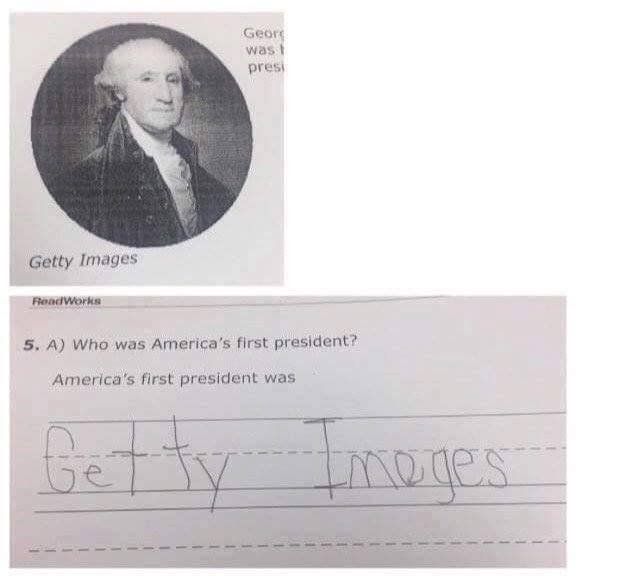 Georg
was t
presi
Getty Images
ReadWorks
5. A) Who was America's first president?
America's first president was
Getty Images